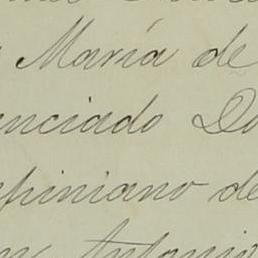 María de
enciado Do
piniano de
Antonio